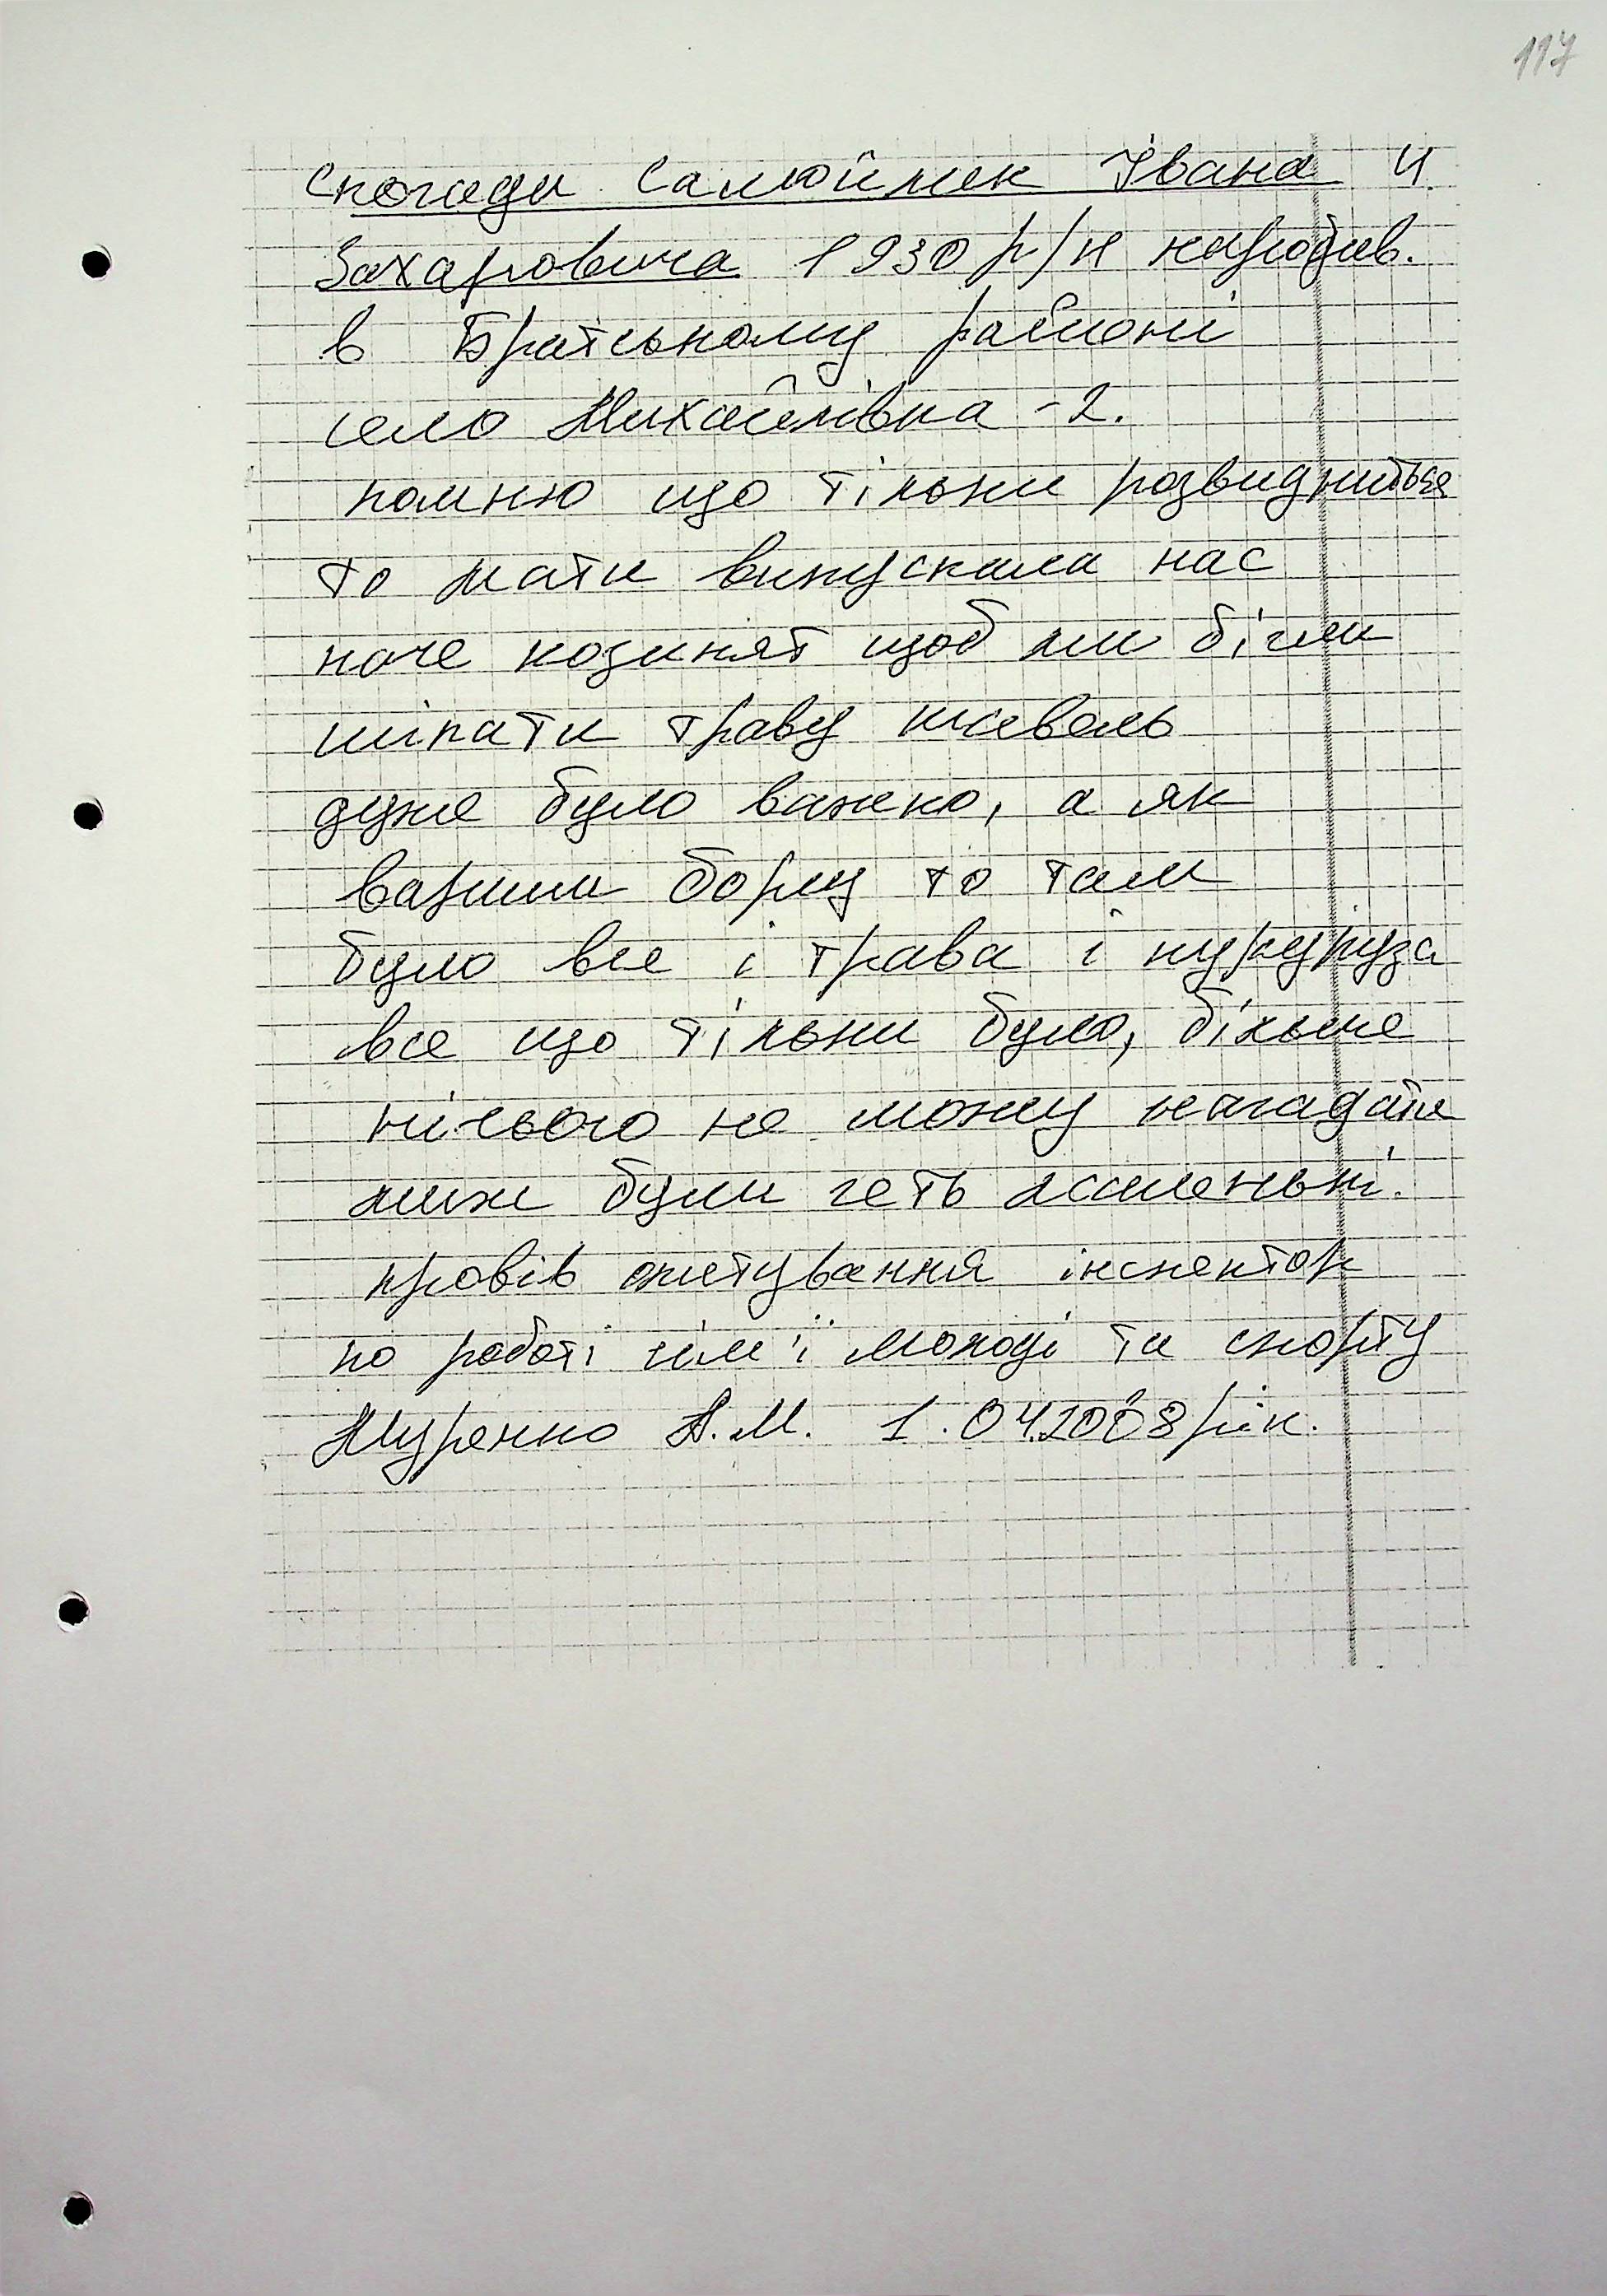 117
Спогади Самойлик Івана Ч.
Захаровича 1930 р/н народив.
в Братському районі
село Михайлівка -2.
помню що тільки розвидниться
то мати випускала нас
наче козинят щоб ми бігли
щіпати траву щавель
дуже було важко, а як
варили борщ то там
було все і трава і кукуруза
все що тільки було, більше
нічього не можу нагадати
миж були геть маленькі.
провів опитування інспектор
по роботі сім'ї молоді та спорту
А.М. 1.04.2008 рік.